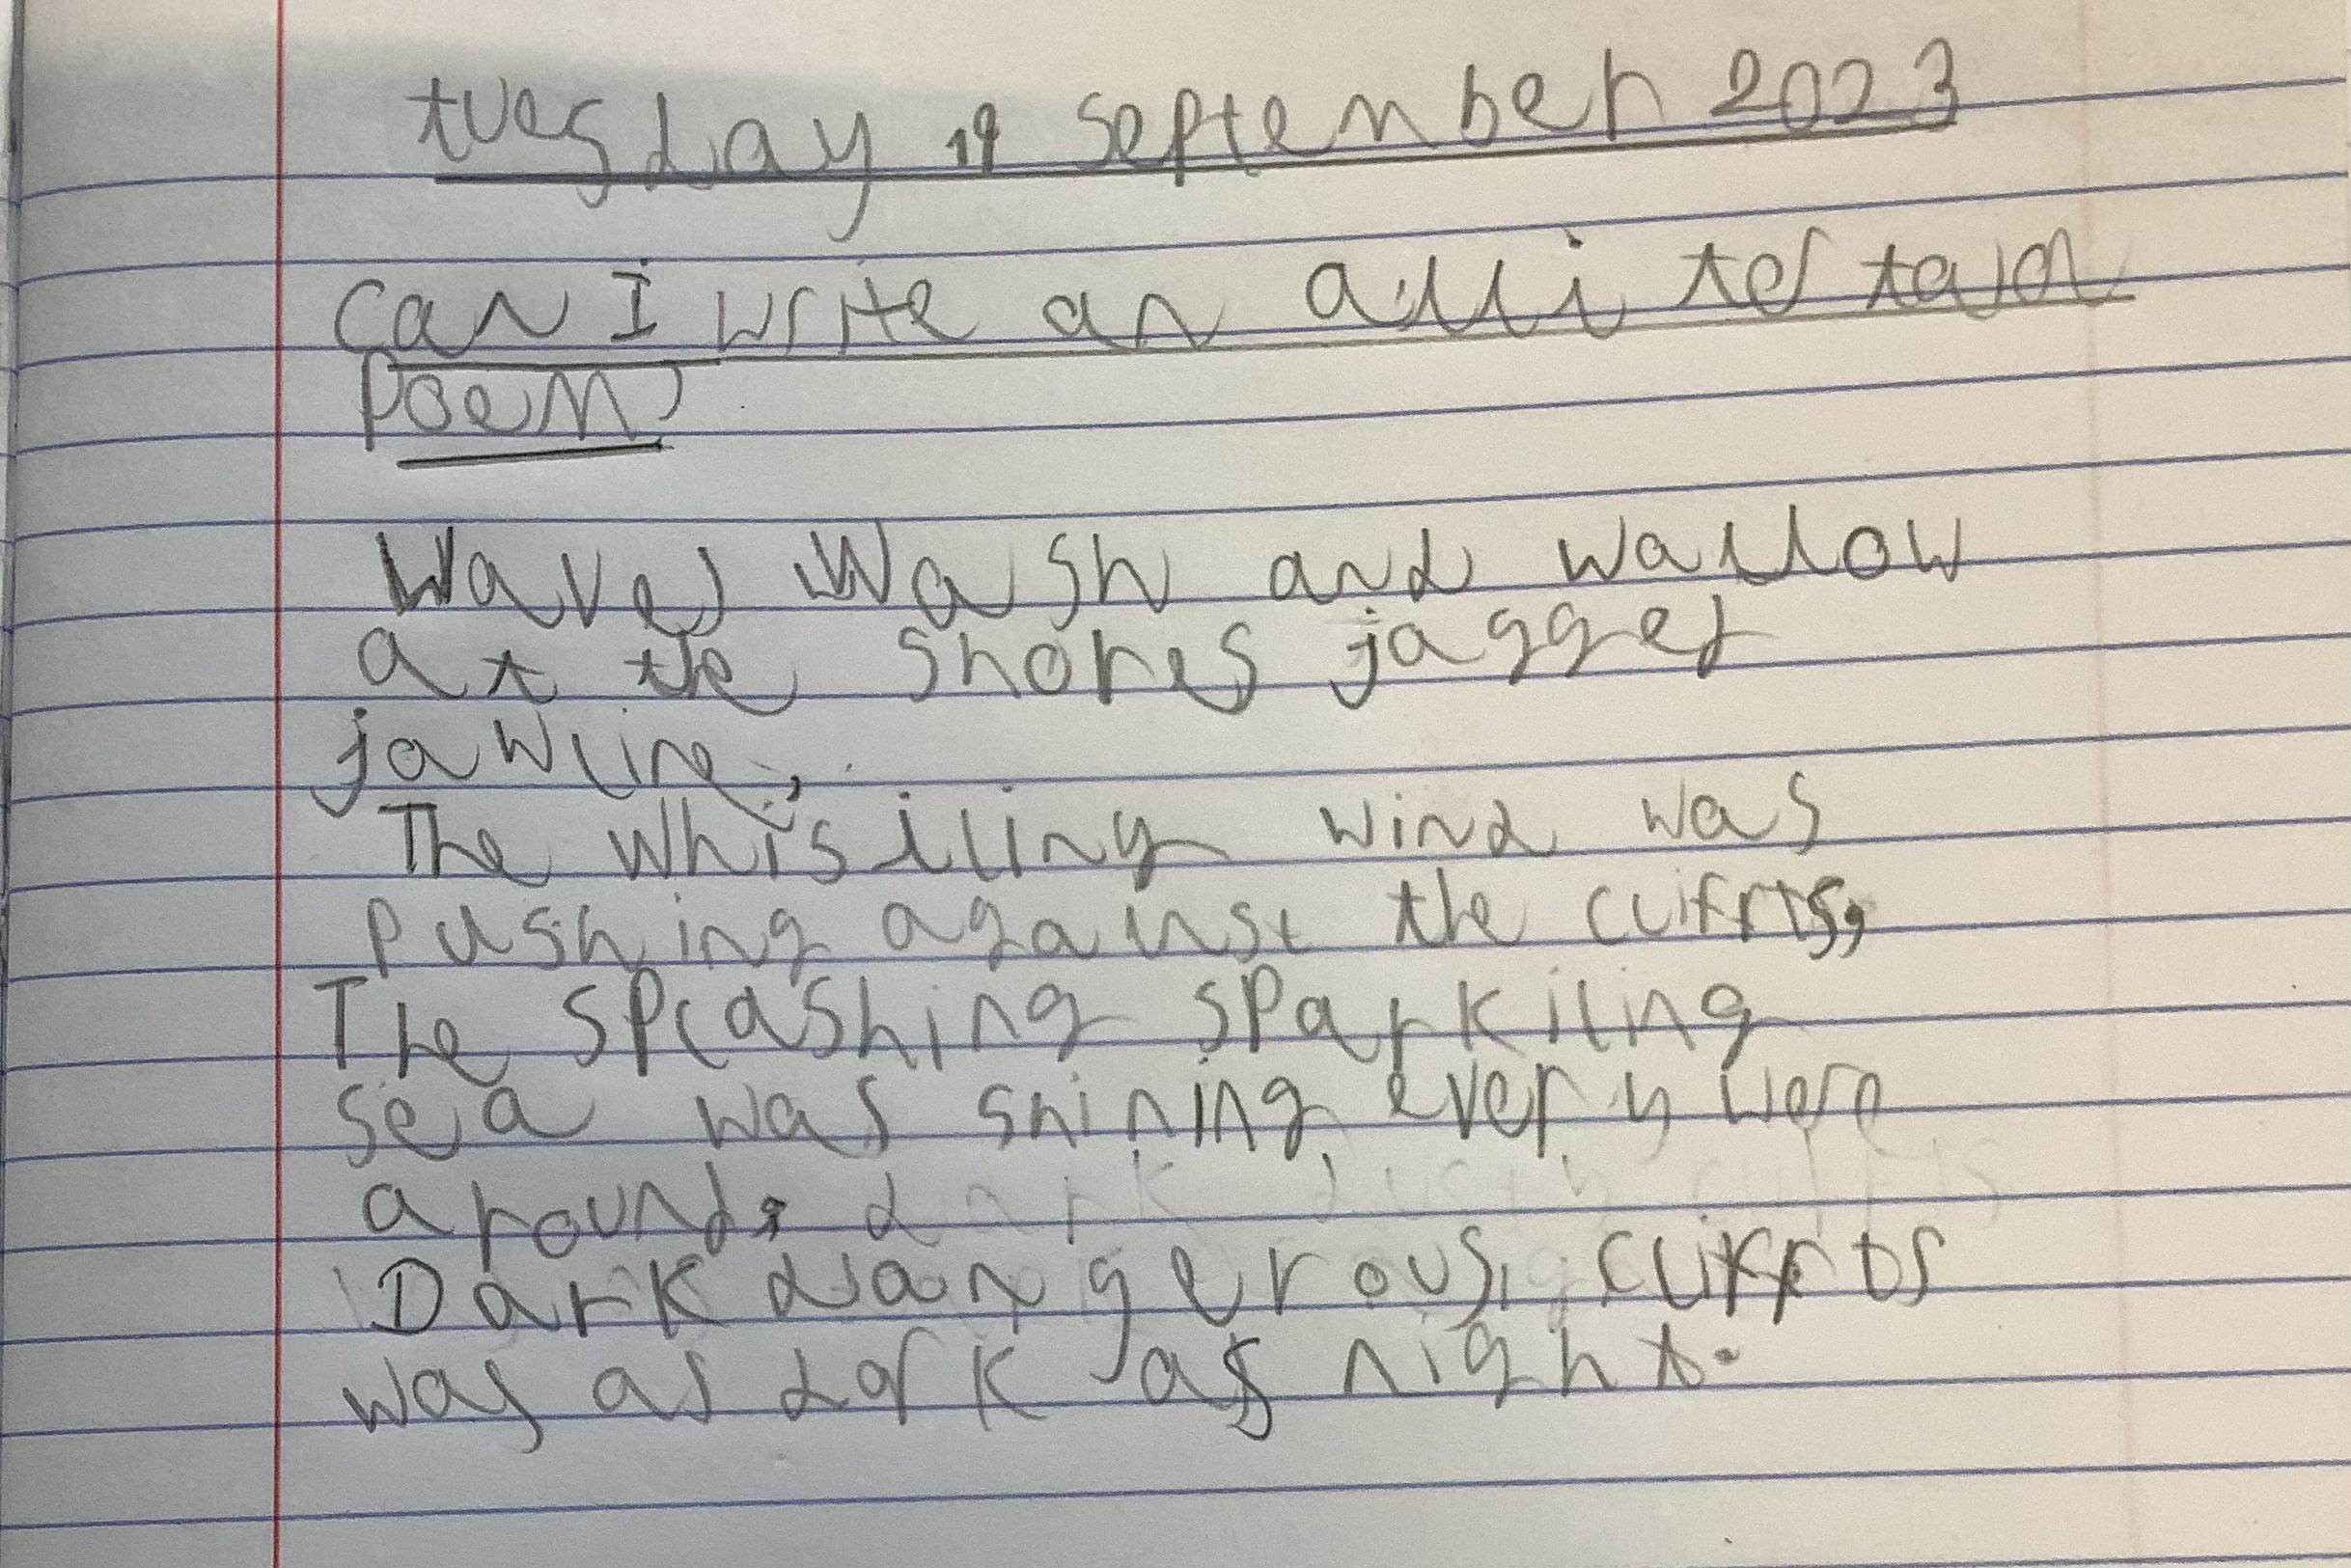 tuesday 19 september 2023
can I write an allitertaion
poem?
Waves Wash and wallow
at the shores jagged
jawline,
The whisiling wind was
pushing against the clifrts,
The splashing sparkiling
sea was shining every were
around, dark
Dark dangerous clifrts
was as dark as night.